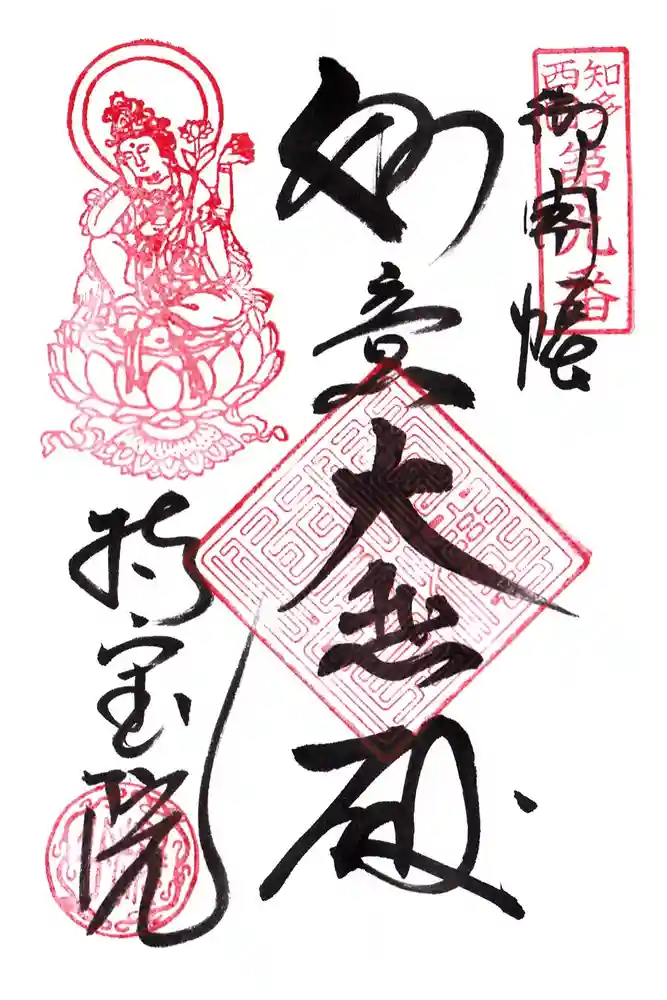 御開帳
知多
西国
第九番
如意大悲殿
持宝院